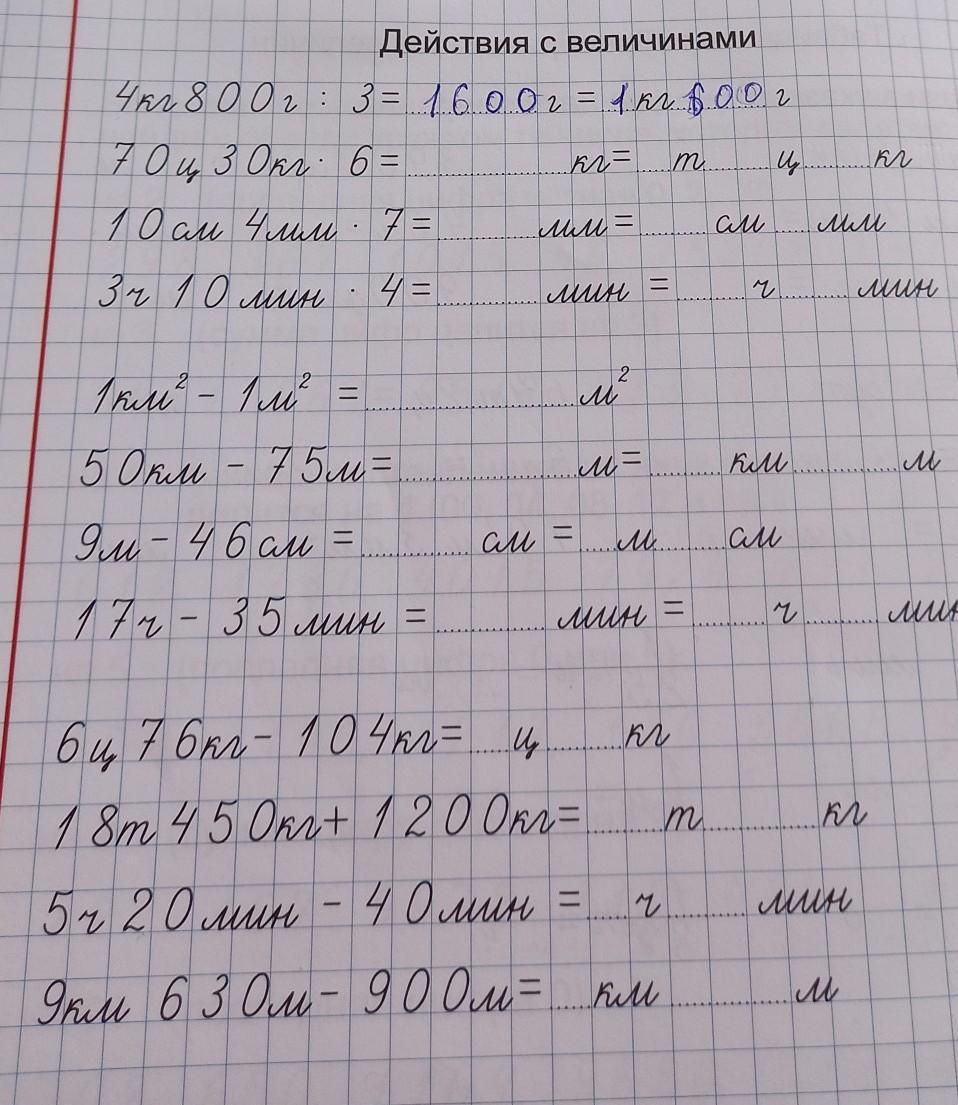 Действия с величинами
4кг800г : 3= 1600г = 1кг 600 г
70ц 30кг · 6=............кг= ...т......ц......кг
10см 4мм · 7=.........мм=......см....мм
3ч 10мин · 4=.........мин =......ч......мин
1км² - 1м² =...................м²
50км - 75м=................м=......км.........м
9м - 46см =..........см =....м......см
17ч - 35мин =..........мин =......ч......мин
6ц 76кг - 104кг=....ц.......кг
18т 450кг+ 1200кг=......т.........кг
5ч 20мин - 40мин =....ч......мин
9км 630м - 900м=....км..........м